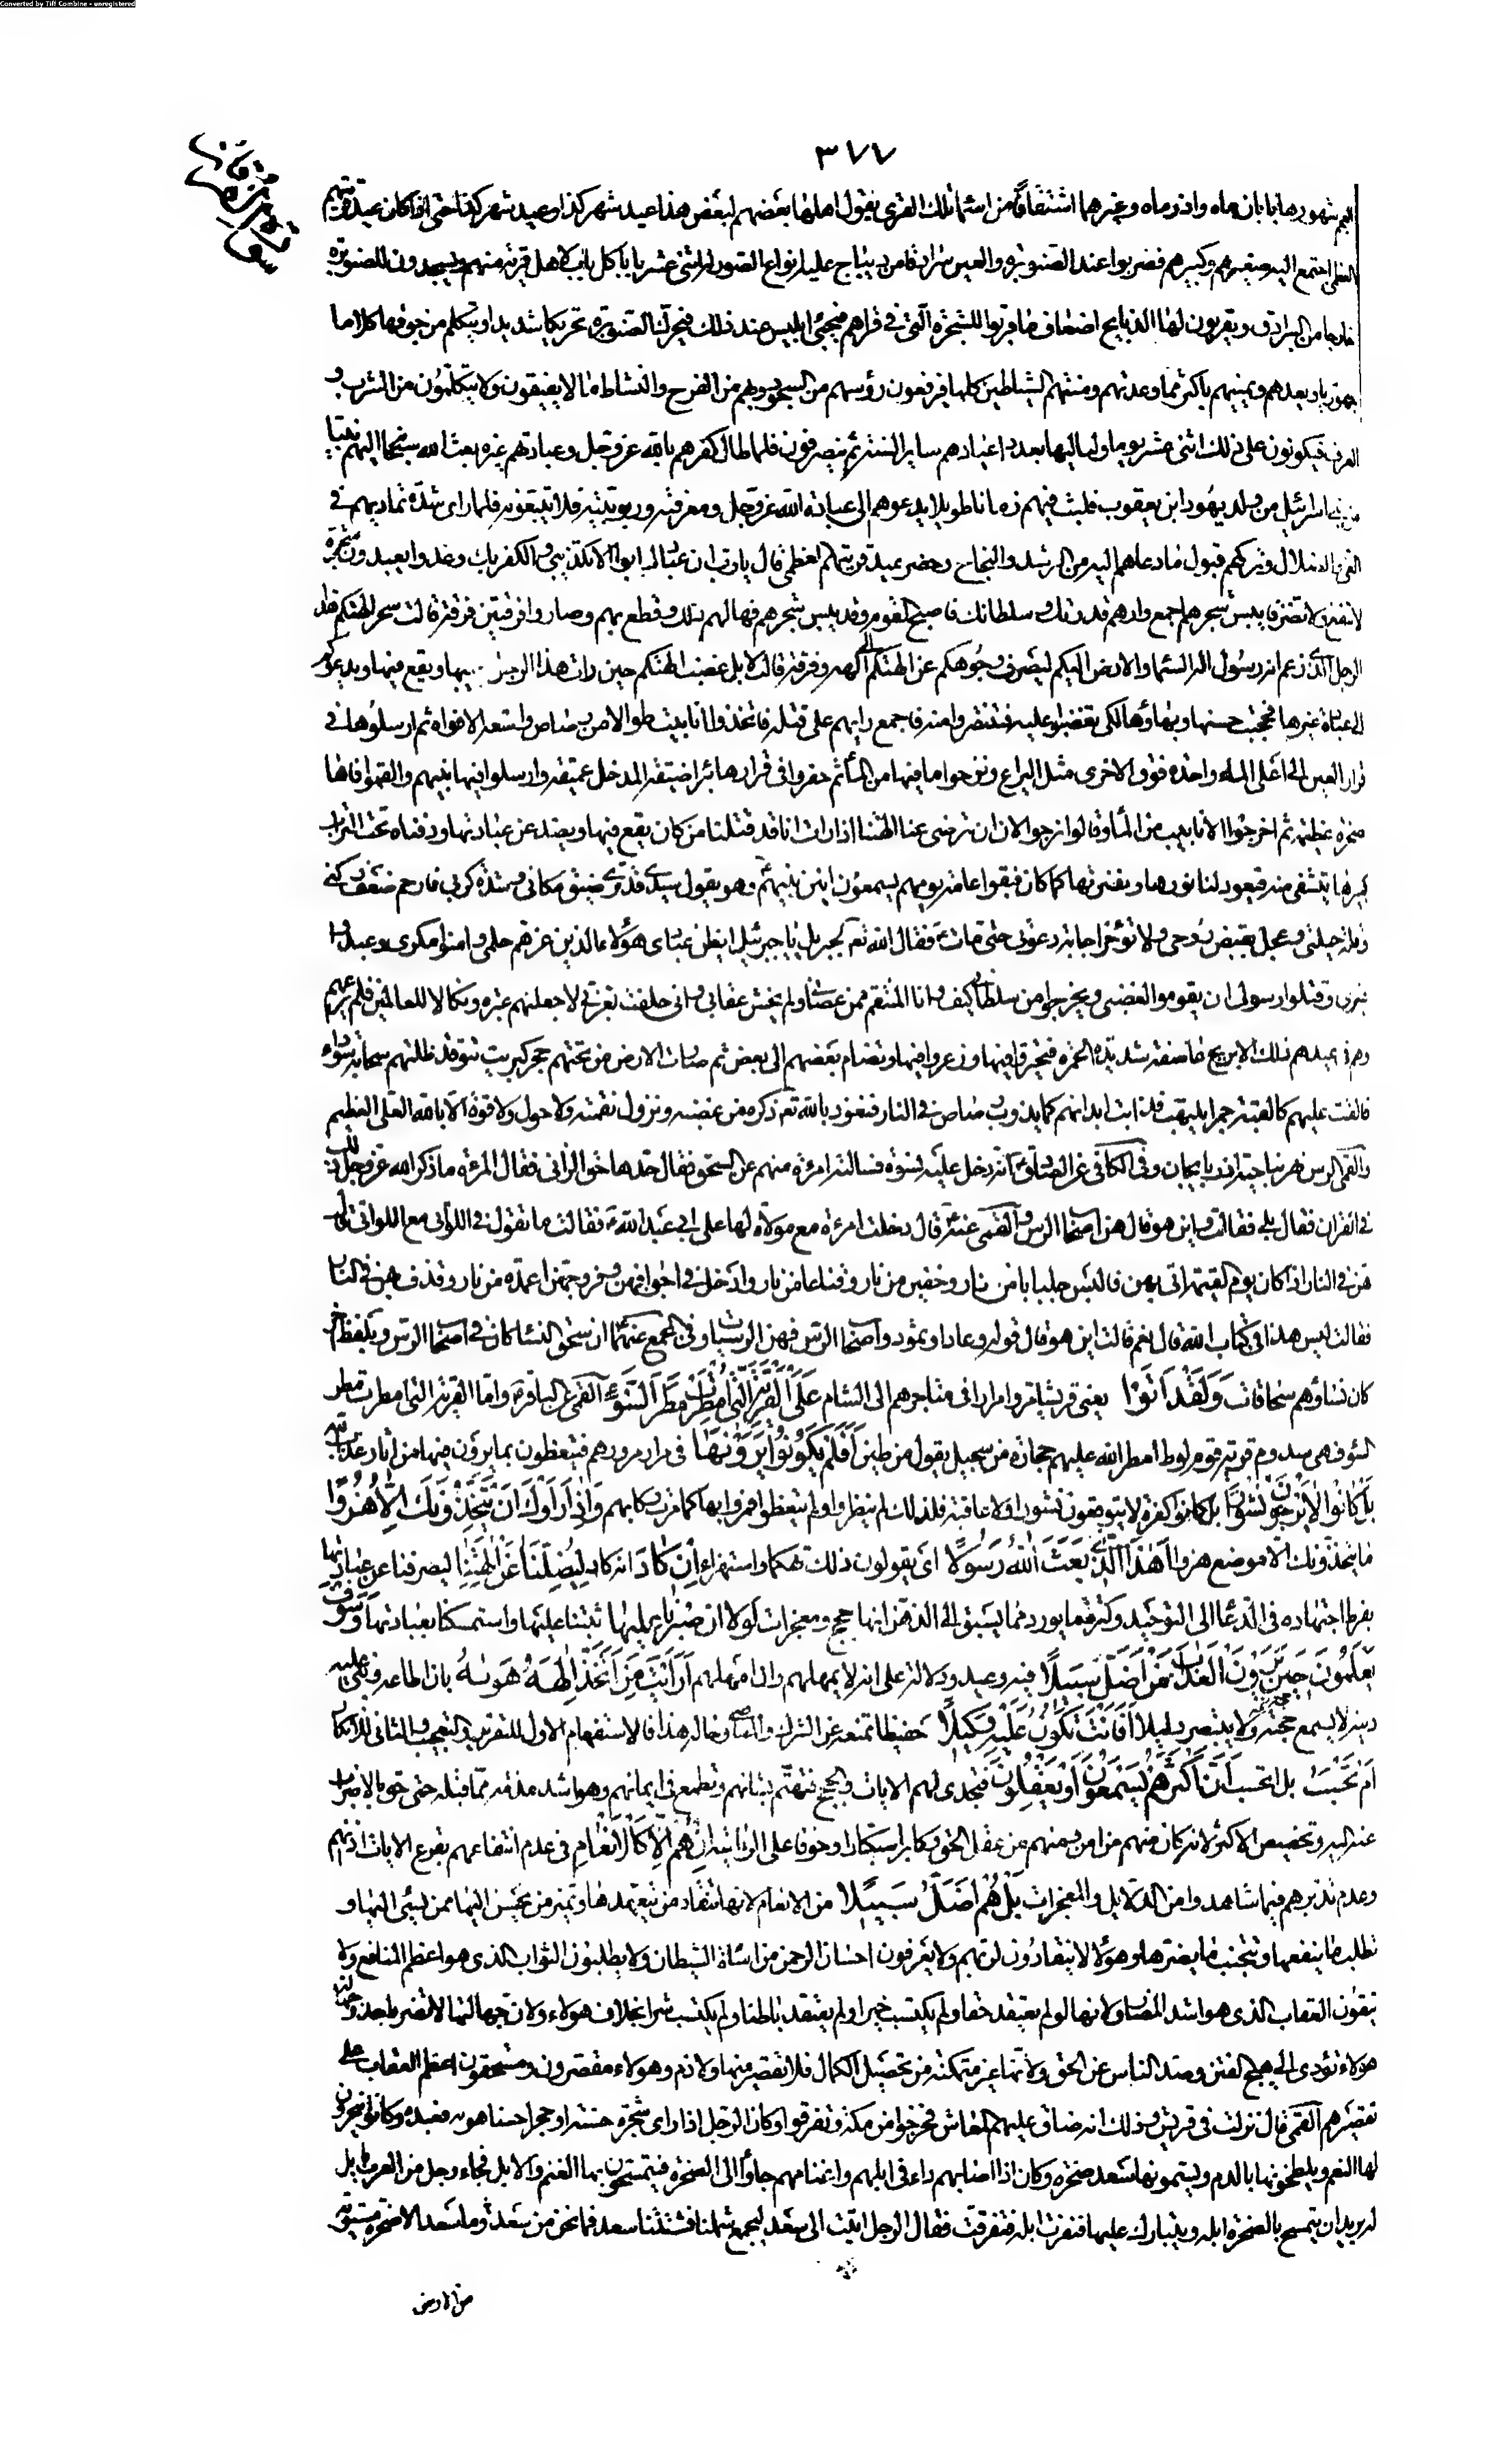 Converted by Tiff Combine - unregistered
٣٧٧
العجم شهورها بابان ماه واذرماه وغيرهما اشتقاقا من اسماء تلك القرى يقول اهلها بعضهم لبعض هذا عيد شهر كذا وعيد شهر كذا حتى اذا كان عيد قريتهم
العظمى اجتمع اليه صغيرهم وكبيرهم فضربوا عند الصنوبرة والعين سرادقا من ديباج عليه انواع الصور له اثنى عشر بابا كل باب لاهل قرية منهم ويسجدون للصنوبرة
خارجا من السرادق ويقربون لها الذبايح اضعاف ما قربوا للشجرة التى فى قراهم فيجيئ ابليس عند ذلك فيحرك الصنوبرة تحريكا شديدا ويتكلم من جوفها كلاما
جهوريا ويعدهم ويمنيهم باكثر مما وعدتهم ومنتهم الشياطين كلها فيرفعون رؤسهم من السجود وبهم من الفرح والنشاط ما لا يفيقون ولا يتكلمون من الشرب و
العزف فيكونون على ذلك اثنى عشر يوما ولياليها بعدد اعيادهم ساير السنة ثم ينصرفون فلما طال كفرهم بالله عز وجل وعبادتهم غيره بعث الله سبحانه اليهم نبيا
من بنى اسرائيل من ولد يهودا بن يعقوب فلبث فيهم زمانا طويلا يدعوهم الى عبادة الله عز وجل ومعرفته وربوبيته فلا يتبعونه فلما راى شدة تماديهم فى
الغى والضلال وتركهم قبول ما دعاهم اليه من الرشد والنجاح وحضر عيد قريتهم العظمى قال يا رب ان عبادك ابوا الا تكذيبى والكفر بك وغدوا يعبدون شجرة
لا تنفع ولا تضر فايبس شجرهم اجمع وارهم قدرتك وسلطانك فاصبح القوم وقد يبس شجرهم فهالهم ذلك وقطع بهم وصاروا فرقتين فرقة قالت سحر الهتكم هذا
الرجل الذى زعم انه رسول اله السماء والارض اليكم ليصرف وجوهكم عن الهتكم الى الهه وفرقة قالت لا بل غضبت الهتكم حين رات هذا الرجل يعيبها ويقع فيها ويدعوكم
الى عبادة غيرها فحجبت حسنها وبهاؤها لكى تغضبوا عليه فتنتصروا منه فاجمع رايهم على قتله فاتخذوا انابيب طوالا من رصاص واسعة الافواه ثم ارسلوها فى
قرار العين الى اعلى الماء واحدة فوق الاخرى مثل البرابخ ونزحوا ما فيها من الماء ثم حفروا فى قرارها بئرا ضيقة المدخل عميقة وارسلوا فيها نبيهم والقموا فاها
صخرة عظيمة ثم اخرجوا الانابيب من الماء وقالوا نرجوا الان ان ترضى عنا الهتنا اذا رات انا قد قتلنا من كان يقع فيها ويصد عن عبادتها ودفناه تحت التراب
كبيرها يتشفى منه فيعود لنا نورها ونضرتها كما كان فبقوا عامة يومهم يسمعون انين نبيهم وهو يقول سيدى قد ترى ضيق مكانى وشدة كربى فارحم ضعف ركنى
وقلة حيلتى وعجل بقبض روحى ولا تؤخر اجابة دعوتى حتى مات فقال الله تعـ لجبرئيل يا جبرئيل ايظن عبادى هؤلاء الذين غرهم حلمى وامنوا مكرى وعبدوا
غيرى وقتلوا رسولى ان يقوموا لغضبى ويخرجوا من سلطانى كيف وانا المنتقم ممن عصانى ولم يخش عقابى وانى حلفت بعزتى لاجعلنهم عبرة ونكالا للعالمين فلم يرعهم
وهم فى عيدهم ذلك الا بريح عاصفة شديدة الحمرة فتحيروا فيها وذعروا فيها وتضام بعضهم الى بعض ثم صارت الارض من تحتهم حجر كبريت تتوقد وظلتهم سحابة سوداء
فالقت عليهم كالقبة جمرا يلتهب فذابت ابدانهم كما يذوب الرصاص فى النار فنعوذ بالله تعـ ذكره من غضبه ونزول نقمته ولا حول ولا قوة الا بالله العلى العظيم
والقمى الرس نهر بناحية اذربايجان وفى الكافى عن الصادق انه دخل عليه نسوة فسالته امرءة منهم عن السحق فقال حدها حد الزانى فقالت المرءة ما ذكر الله عز وجل ذلك
فى القران فقال بلى فقالت واين هو قال هن اصحاب الرس والقمى عنه قال دخلت امرءة مع مولاة لها على ابى عبد الله فقالت ما تقول فى اللواتى مع اللواتى قال
هن فى النار اذا كان يوم القيمة اتى بهن فالبسن جلبابا من نار وخفين من نار وقناعا من نار وادخل فى اجوافهن وفروجهن اعمدة من نار وقذف بهن فى النار
فقالت اليس هذا فى كتاب الله قال نعم قالت اين هو قال قوله وعادا وثمود واصحاب الرس فهن الرسيات وفى المجمع عنهما ان سحق النساء كان فى اصحاب الرس وبلفظ اخر
كان نساؤهم سحاقات وَلَقَدْ اَتَوْا يعنى قريشا مروا مرارا فى متاجرهم الى الشام عَلَى الْقَرْيَةِ الَّتِى اُمْطِرَتْ مَطَرَ السَّوْءِ القمى عن الباقر واما القرية التى امطرت مطر
السوء فهى سدوم قرية قوم لوط امطر الله عليهم حجارة من سجيل يقول من طين اَفَلَمْ يَكُونُوا يَرَوْنَهَا فى مرار مرورهم فيتعظون بما يرون فيها من اثار عذاب الله
بَلْ كَانُوا لَا يَرْجُونَ نُشُورًا بل كانوا كفرة لا يتوقعون نشورا ولا عاقبة فلذلك لم ينظروا ولم يتعظوا فمروا بها كما مرت ركابهم وَاِذَا رَاَوْكَ اِنْ يَتَّخِذُونَكَ اِلَّا هُزُوًا
ما يتخذونك الا موضع هزو اَهٰذَا الَّذِى بَعَثَ اللّٰهُ رَسُولًا اى يقولون ذلك تهكما واستهزاء اِنْ كَادَ انه كاد لَيُضِلُّنَا عَنْ اٰلِهَتِنَا ليصرفنا عن عبادتها
بفرط اجتهاده فى الدعاء الى التوحيد وكثرة ما يورد مما يسبق الى الذهن انها حجج ومعجزات لَوْلَا اَنْ صَبَرْنَا عَلَيْهَا ثبتنا عليها واستمسكنا بعبادتها وَسَوْفَ
يَعْلَمُونَ حِينَ يَرَوْنَ الْعَذَابَ مَنْ اَضَلُّ سَبِيلًا فيه وعيد ودلالة على انه لا يمهلهم وان امهلهم اَرَاَيْتَ مَنِ اتَّخَذَ اِلٰهَهُ هَوٰيهُ بان اطاعه وبنى عليه
دينه لا يسمع حجة ولا يتبصر دليلا اَفَاَنْتَ تَكُونُ عَلَيْهِ وَكِيلًا حفيظا تمنعه عن الشرك والمعاصى وحاله هذا فالاستفهام الاول للتقرير والتعجيب والثانى للانكار
اَمْ تَحْسَبُ بل اتحسب اَنَّ اَكْثَرَهُمْ يَسْمَعُونَ اَوْ يَعْقِلُونَ فتجدى لهم الايات والحجج فتهتم بشانهم وتطمع فى ايمانهم وهو اشد مذمة مما قبله حتى حق بالاضراب
عنه اليه وتخصيص الاكثر لانه كان منهم من امن ومنهم من عقل الحق وكابر استكبارا وخوفا على الرئاسة اِنْ هُمْ اِلَّا كَالْاَنْعَامِ فى عدم انتفاعهم بقرع الايات اذانهم
وعدم تدبرهم فيما شاهدوا من الدلايل والمعجزات بَلْ هُمْ اَضَلُّ سَبِيلًا من الانعام لانها تنقاد من يتعهدها وتميز من يحسن اليها ممن يسيئ اليها و
تطلب ما ينفعها وتتجنب ما يضرها وهؤلاء لا ينقادون لربهم ولا يعرفون احسان الرحمن من اساءة الشيطان ولا يطلبون الثواب الذى هو اعظم المنافع ولا
يتقون العقاب الذى هو اشد المضار ولانها لو لم يعتقد حقا ولم يكتسب خيرا ولم يعتقد باطلا ولم يكتسب شرا بخلاف هولاء ولان جهالتها لا تضر باحد وجهالة
هولاء تؤدى الى هيج الفتن وصد الناس عن الحق ولانها غير متمكنة من تحصيل الكمال فلا تقصير منها ولا ذم وهولاء مقصرون ومستحقون اعظم العقاب على
تقصيرهم القمى قال نزلت فى قريش وذلك انه ضاق عليهم المعاش فخرجوا من مكة وتفرقوا وكان الرجل اذا راى شجرة حسنة او حجرا حسنا هويه فعبده وكانوا ينحرون
لها النعم ويلطخونها بالدم ويسمونها سعد صخرة وكان اذا اصابهم داء فى ابلهم واغنامهم جاؤا الى الصخرة فيتمسحون بها الغنم والابل فجاء رجل من العرب بابل
له يريد ان يتمسح بالصخرة ابله ويتبارك عليها فنفرت ابله فتفرقت فقال الرجل اتيت الى سعد ليجمع شملنا فشتتنا سعد فما نحن من سعد وما سعد الا صخرة مستوية
من الارض